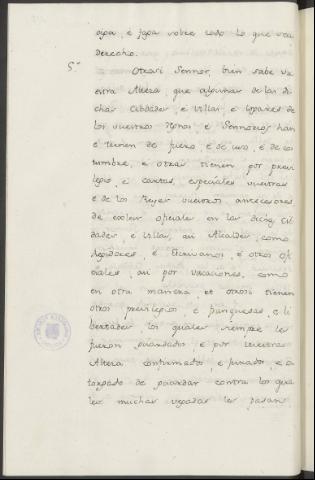 oya, é faga sobre todo lo que sea
derecho.
5.º Otrosi Sennor, bien sabe vu
estra Alteza que algunas de las di
chas Cibdades, é villas, é logares de
los vuestros Regnos, é Sennorios han
é tienen de fuero, é de uso, é de cos
tumbre, é otras tienen por previ
legio, é cartas, espeçiales vuestras
é de los Reyes vuestros antecesores
de esleir oficiales en las dichas Cib
dades, é villas, asi Alcaldes, como
Regidores, é Escrivanos, é otros ofi
ciales, asi por vacaciones, como
en otra manera, et otrosi tienen
otros previlegios, é franquesas, é li
bertades, los quales siempre les
fueron guardados, é por vuestra
Alteza confirmados, é jurados, é o
torgado de guardar contra los qua
les muchas vegadas les pasan